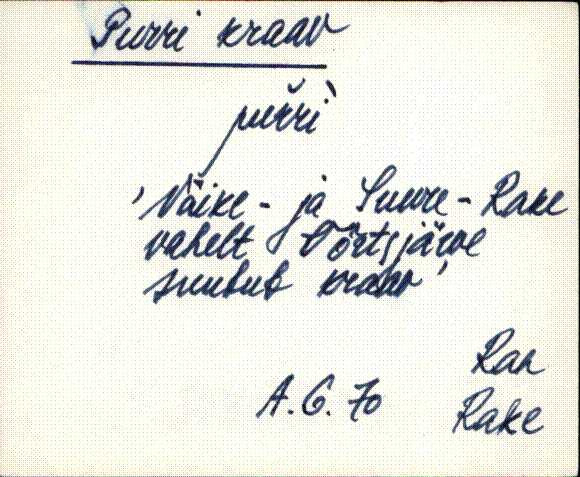 Purri kraav
purri`
'Väike- ja Suure-Rake
vahelt Võrtsjärve
suubub kraav'
Ran
A. G. 70
Rake